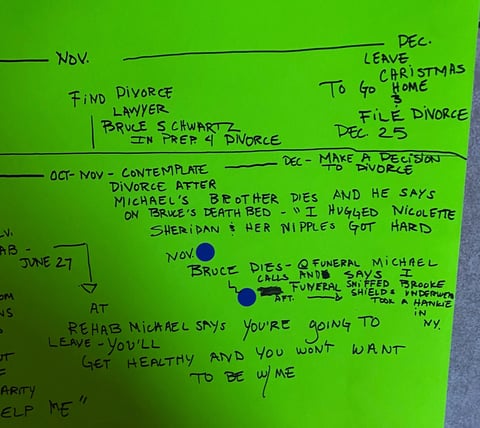 NOV.
DEC.
LEAVE
CHRISTMAS
TO GO HOME
&
FILE DIVORCE
DEC. 25
FIND DIVORCE
LAWYER
BRUCE SCHWARTZ
IN PREP 4 DIVORCE
OCT-NOV - CONTEMPLATE
DIVORCE AFTER
DEC - MAKE A DECISION
TO DIVORCE
MICHAEL'S BROTHER DIES AND HE SAYS
ON BRUCE'S DEATH BED - "I HUGGED NICOLETTE
SHERIDAN & HER NIPPLES GOT HARD
NOV.
BRUCE DIES - @ FUNERAL MICHAEL
CALLS AND SAYS I
AFT. FUNERAL SNIFFED BROOKE
SHIELDS UNDERWEAR
TOOK A HANKIE
IN
NY.
LV.
AB -
JUNE 27
AT
REHAB MICHAEL SAYS YOU'RE GOING TO
LEAVE - YOU'LL
GET HEALTHY AND YOU WON'T WANT
TO BE W/ME
OM
NS
UT
F
ARITY
ELP ME"